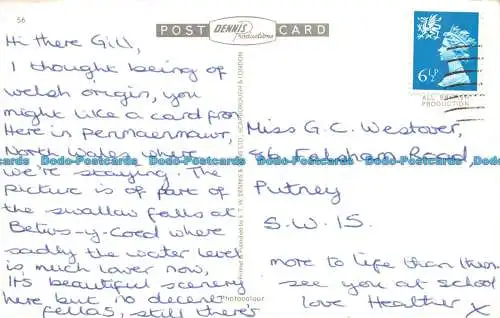 56
POST DENNIS Productions CARD
Hi there Gill,
I thought being of
welsh origin, you
might like a card from
Here in penmaenmawr,
North Wales where
we're staying. The
picture is of part of
the swallow falls at
Betws-y-Coed where
sadly the water level
is much lower now,
Its beautiful scenery
here but no decent
fellas, still there's
more to life than them
see you at school
love Heather x
Miss G.C. Westover,
Falsham Road,
Putney
S.W. 15.
6½P
ALL BRITISH
PRODUCTION
Printed & Published by E. T. W. DENNIS & SONS LTD., SCARBOROUGH & LONDON
Photocolour
Dodo-Postcards Dodo-Postcards Dodo-Postcards Dodo-Postcards Dodo-Postcards